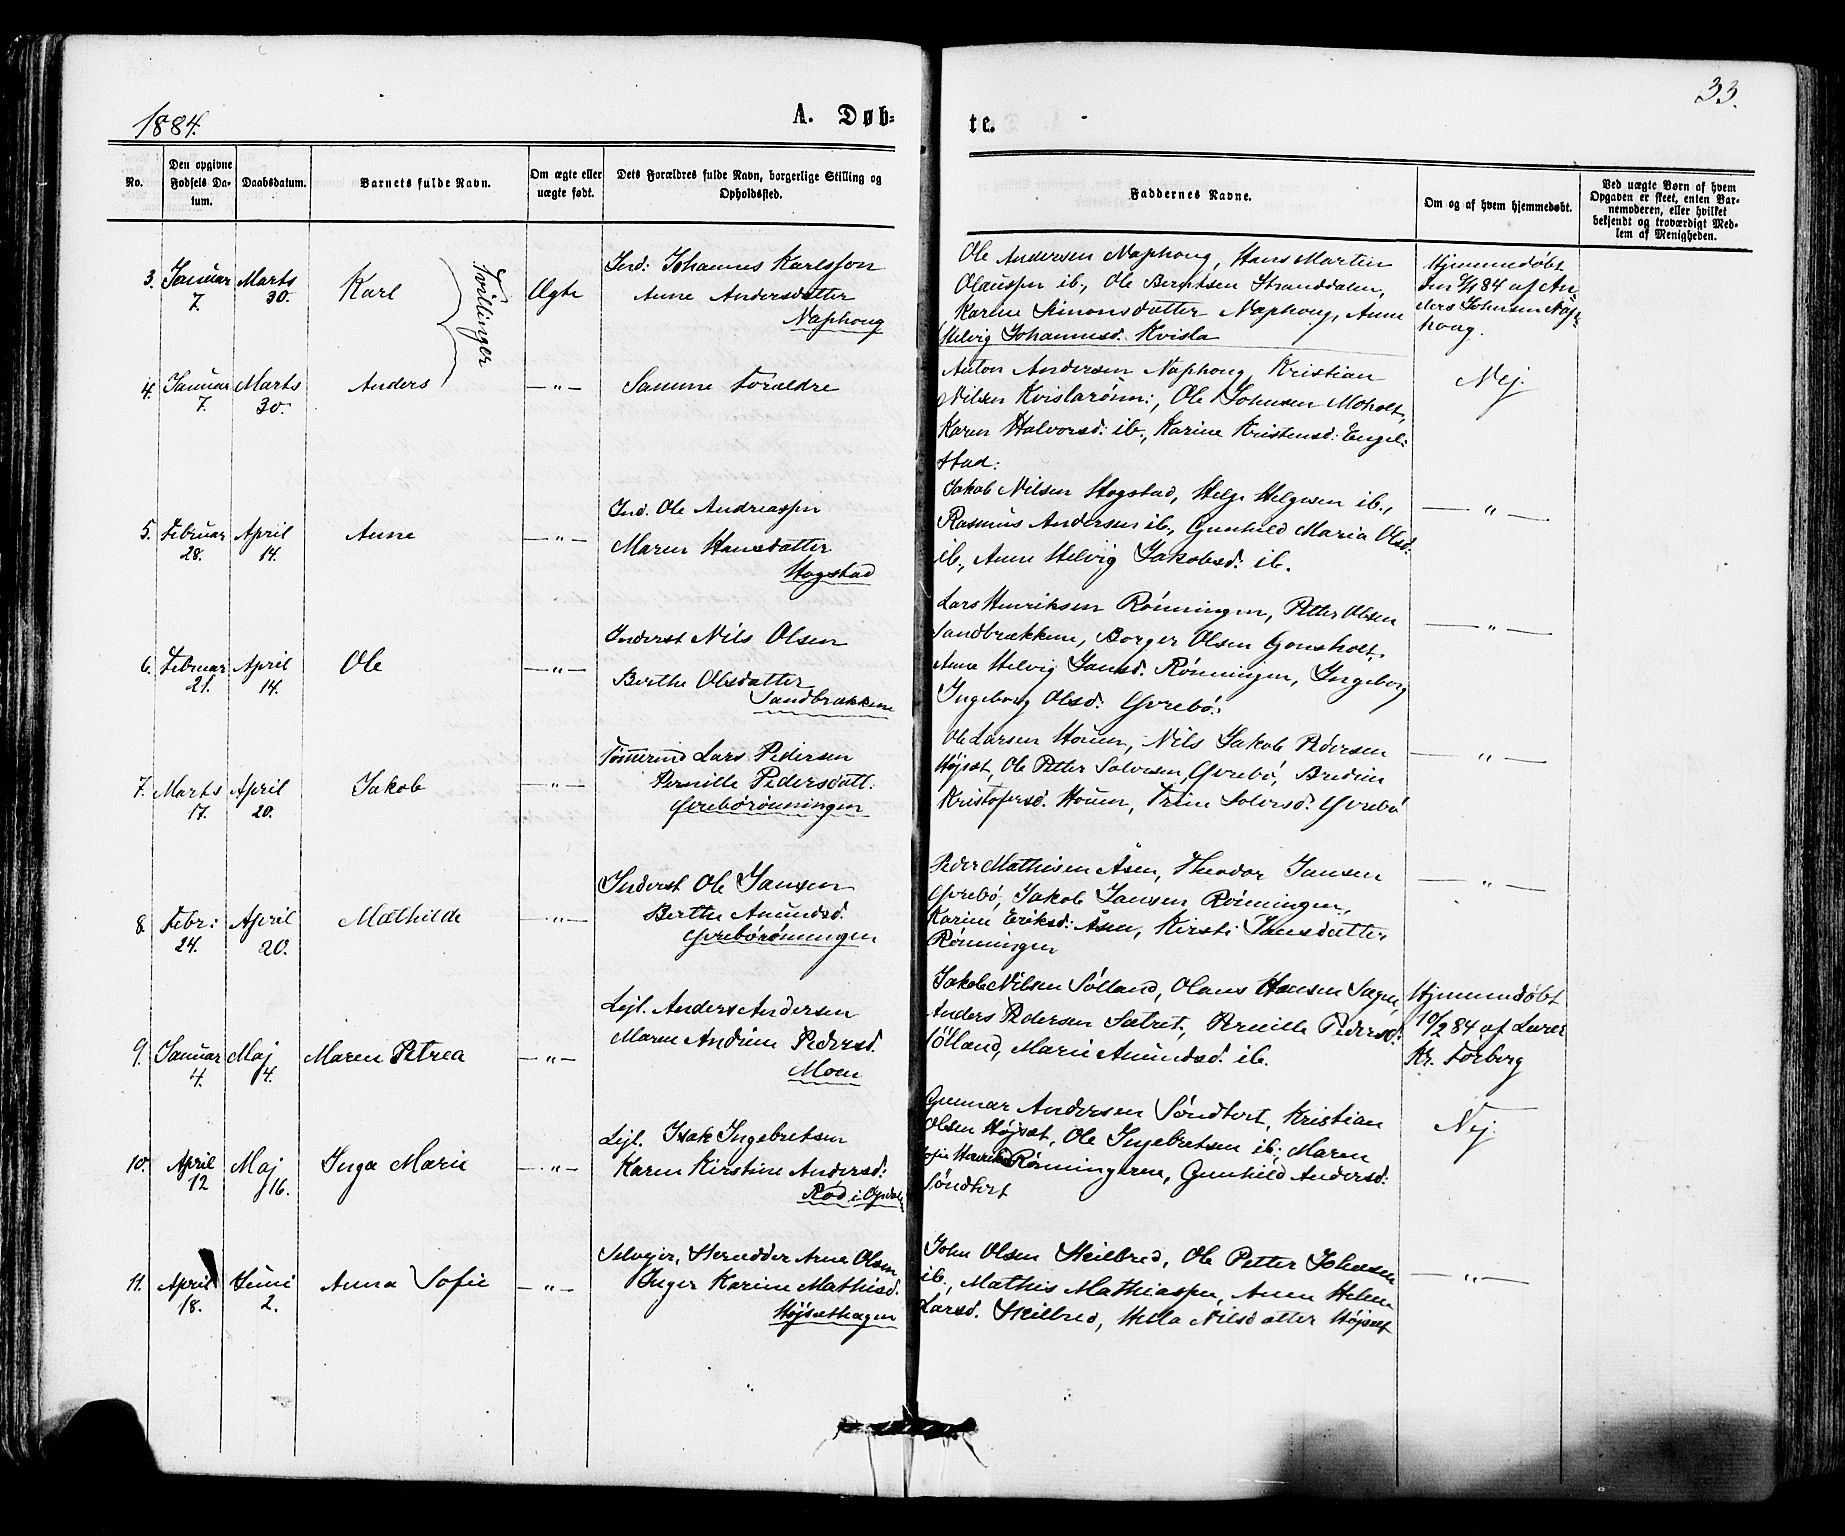 33.
1884.
A. Døb-
te.
No.
Den opgivne Fødsels Da-tum.
Daabsdatum.
Barnets fulde Navn.
Om ægte eller uægte født.
Dets Forældres fulde Navn, borgerlige Stilling og Opholdssted.
Faddernes Navne.
Om og af hvem hjemmedøbt.
Ved uægte Børn af hvem Opgaven er skeet, enten Bar-nemoderen, eller hvilket bekjendt og troværdigt Med-lem af Menigheden.
3. Januar 7. Marts 30. Karl
Tvillinger
Ægte
Ind: Johannes Karlsson
Anne Andersdatter
Naphoug
Ole Andersen Naphoug, Hans Martin
Olaussen ib., Ole Berntsen Stranddalen,
Karine Simonsdatter Naphoug, Anne
Helvig Johannesd. Kvisla
Hjemmedøbt
den /1 84 af An-
ders Johnsen Nap-
houg.
4. Januar 7. Marts 30. Anders —„—
Samme Forældre
Anton Andersen Naphoug, Kristian
Nilsen Kvislarønn:, Ole Johnsen Moholt,
Karen Halvorsd: ib., Karine Kristensd: Engel-
stad:
Nej.
5. Februar 28. April 14. Anne —„—
Ind. Ole Andreassen
Maren Hansdatter
Hogstad
Jakob Nilsen Hogstad, Helge Helgesen ib.,
Rasmus Andersen ib., Gunhild Maria Olsd.
ib., Anne Helvig Jakobsd. ib.
—„—
6. Februar 21. April 14. Ole —„—
Inderst Nils Olsen
Berthe Olsdatter
Sandbrækkene
Lars Henriksen Rønningen, Petter Olsen
Sandbrækkene, Borger Olsen Gonsholt,
Anne Helvig Jansd. Rønningen, Ingeborg
Ingeborg Olsd. Gvrebø.
—„—
7. Marts 17. April 20. Jakob —„—
Tømmermd Lars Pedersen
Pernille Pedersdatt:
Gvrebørønningen
Ole Larsen Houen, Nils Jakob Pedersen
Højset, Ole Petter Salvesen Gvrebø, Bredine
Kristofersd. Houen, Trine Solversd. Gvrebø
—„—
8. Febr: 24. April 20. Mathilde —„—
Inderst Ole Jansen
Berthe Amundsd.
Gvrebørønningen
Peder Mathisen Åsen, Theodor Jansen
Gvrebø, Jakob Jansen Rønningen,
Karine Eriksd: Åsen, Kirsti Jansdatter
Rønningen
—„—
9. Januar 4. Maj 4. Maren Petrea —„—
Lejl. Anders Andersen
Maren Andrine Pedersd.
Moen
Jakob Nilsen Sølland, Olaus Hansen Sagen,
Anders Pedersen Sætret, Pernille Pedersd.
Sølland, Marie Amundsd. ib.
Hjemmedøbt
10/2 84 af Lærer
Kr. Forberg
10. April 12 Maj 16. Inga Marie —„—
Lejl. Isak Ingebretsen
Karen Kirstine Andersd:
Rød i Opdal
Gunnar Andersen Søndbort, Kristian
Olsen Højset, Ole Ingebretsen ib., Maren
Sofie Henriksd Rønningeren, Gunhild Andersd.
Søndbort
Nej.
11. April 18. Juni 2. Anna Sofie —„—
Selvejer, Skrædder Arne Olsen
Inger Karine Mathisd.
Højsethagen
John Olsen Skilbred, Ole Petter Johnsen
ib., Mathis Mathiassen, Anne Helene
Larsd. Skilbred, Hella Nilsdatter Højset
—„—